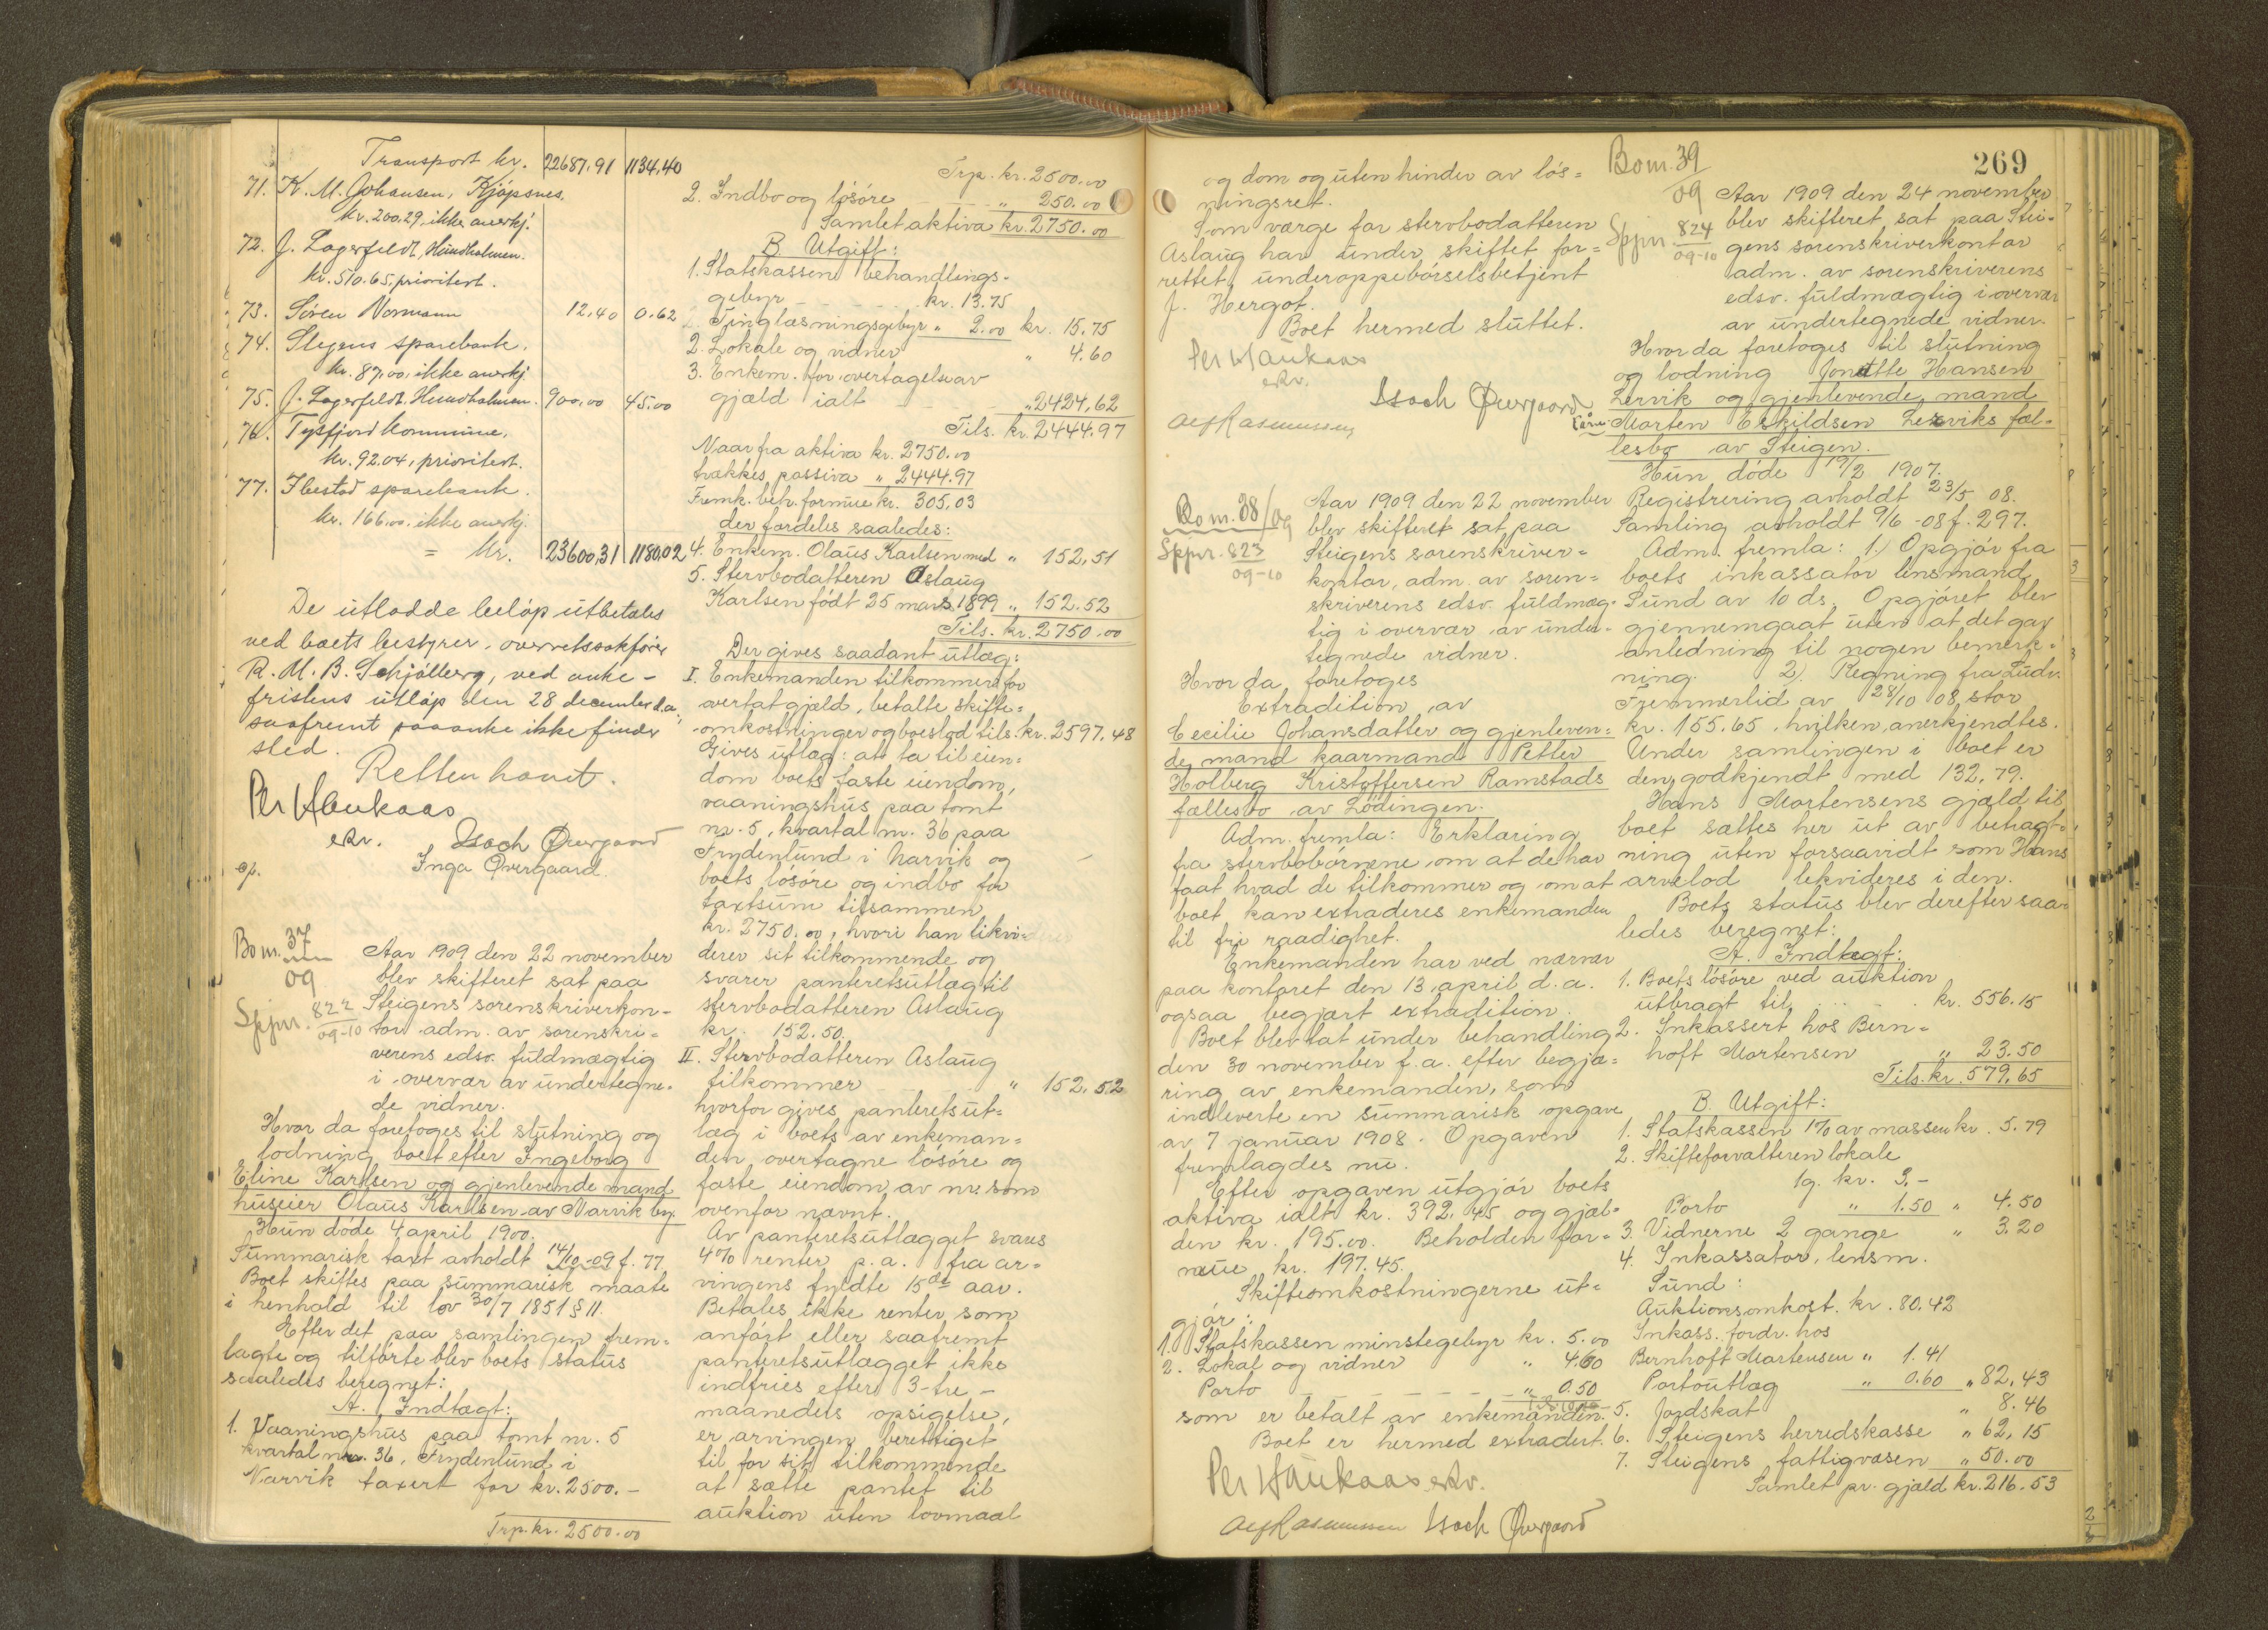 Transport kr. 22687,91 1134,40
71. K. M. Johansen, Kjöpsnes,
kr. 200.29, ikke anerkj.
72. J. Lagerfeldt, Hundholmen.
kr. 510.65, prioritert.
73. Sören Normann 12,40 0.62
74. Stegens sparebank.
kr. 87,00, ikke anerkj.
75. J. Lagerfeldt. Hundholmen. 900,00 45,00
76. Tysfjord kommune.
kr. 92.04, prioritert.
77. Ibestad sparebank.
kr. 166,00. ikke anerkj.
= kr. 23600,31 1180,02
De utlodde belöp utbetales
ved boets bestyrer, overretssakförer
R. M. B. Schjölberg, ved anke-
fristens utlöp den 28 december d.a,
saafremt paaanke ikke finder
sted.
Retten hævet.
Per Haukaas
eskr. Isach Övergaard
ep. Inga Övergaard.
Bom. 37
09
Sppr. 822
09-10
Aar 1909 den 22 november
blev skifteret sat paa
Steigens sorenskriverkon-
tor adm. av sorenskri-
verens edsv. fuldmægtig
i overvær av undertegne-
de vidner.
Hvor da foretoges til slutning og
lodning boet efter Ingeborg
Eline Karlsen og gjenlevende mand
huseier Olaus Karlsen av Narvik by.
Hun döde 4 april 1900.
Summarisk taxt avholdt 14/10-09 f. 77
Boet skiftes paa summarisk maate
i henhold til lov 30/7 1851 § 11.
Efter det paa samlingen frem-
lagte og tilförte blev boets status
saaledes beregnet:
A. Indtægt:
1. Vaaningshus paa tomt nr. 5
kvartal nr. 36, Frydenlund i
Narvik taxert for kr. 2500.-
Trp. kr. 2500.00
Trp. kr. 2500.00
2. Indbo og lösöre " 250.00
Samlet aktiva kr. 2750.00
B. Utgift:
1. Statskassen behandlings-
gebyr kr. 13.75
Tinglæsningsgebyr " 2.00 kr. 15.75
2. Lokale og vidner " 4.60
3. Enkem. for overtagelse av
gjæld ialt " 2424,62
Tils. kr. 2444.97
Naar fra aktiva kr. 2750.00
trækkes passiva " 2444.97
Fremk. beh. formue kr. 305,03
der fordeles saaledes:
4. Enkem. Olaus Karlsen med " 152,51
5. Stervbodatteren Aslaug
Karlsen födt 25 mars 1899 " 152.52
Tils. kr. 2750.00
Der gives saadant utlæg:
I. Enkemanden tilkommer for
overtat gjæld, betalte skifte-
omkostninger og boeslod tils. kr. 2597.48
Gives utlæg: at ta til eien-
dom boets faste eiendom,
vaaningshus paa tomt
nr. 5, kvartal nr. 36 paa
Frydenlund i Narvik og
boets lösöre og indbo for
taxtsum tilsammen
kr. 2750.00, hvori han likvi-
derer sit tilkommende og
svarer panteretsutlæg til
stervbodatteren Aslaug
kr. 152.50.
II. Stervbodatteren Aslaug
tilkommer " 152.52
hvorfor gives panteretsut-
læg i boets av enkeman-
den overtagne lösöre og
faste eiendom av nr. som
ovenfor nævnt.
Av panteretsutlægget svares
4% renter p.a. fra ar-
vingens fyldte 15de aar.
Betales ikke renter som
anfört eller saafremt
panteretsutlægget ikke
indfries efter 3-tre-
maaneders opsigelse,
er arvingen berettiget
til for sit tilkommende
at sætte pantet til
auktion uten lovmaal
og dom og uten hinder av lös-
ningsret.
Som værge for stervbodatteren
Aslaug har under skiftet for-
rettet underoppebörselsbetjent
J. Hergot.
Boet hermed sluttet.
Per Haukaas
eskr.
Isach Övergaard
Alf Rasmussen
Bom. 38/09
Sppr. 823
09-10
Aar 1909 den 22 november
blev skifteret sat paa
Steigens sorenskriver-
kontor, adm. av soren-
skriverens edsv. fuldmæg-
tig i overvær av under-
tegnede vidner.
Hvor da foretoges
Extradition av
Cecilie Johansdatter og gjenleven-
de mand kaarmand Petter
Holberg Kristoffersen Ramstads
fællesbo av Lödingen.
Adm. fremla: Erklæring
fra stervbobörnene om at de har
faat hvad de tilkommer og om at
boet kan extraderes enkemanden
til fri raadighet.
Enkemanden har ved nærvær
paa kontoret den 13 april d.a.
ogsaa begjært extradition.
Boet blev tat under behandling
den 30 november f.a. efter begjæ-
ring av enkemanden, som
indleverte en summarisk opgave
av 7 januar 1908. Opgaven
fremlagdes nu.
Efter opgaven utgjör boets
aktiva ialt kr. 392.45 og gjæl-
den kr. 195.00. Beholden for-
mue kr. 197.45.
Skifteomkostningerne ut-
gjör:
1. Statskassen minstegebyr kr. 5.00
2. Lokal og vidner " 4.60
Porto " 0.50
som er betalt av enkemanden.
Boet er hermed extradert.
Per Haukaas eskr.
Alf Rasmussen Isach Övergaard
269
Bom. 39
09
Sppr. 824
09-10
Aar 1909 den 24 november
blev skifteret sat paa Stei-
gens sorenskriverkontor
adm. av sorenskriverens
edsv. fuldmægtig i overvær
av undertegnede vidner.
Hvor da foretoges til slutning
og lodning Jonette Hansen
Lervik og gjenlevende mand
Morten Eskildsen Lerviks fæl-
lesbo av Steigen.
Hun döde 19/2 1907.
Registrering avholdt 23/5 08.
Samling avholdt 9/6 -08 f. 297.
Adm. fremla: 1.) Opgjör fra
boets inkassator lensmand
Sund av 10 ds. Opgjöret blev
gjennemgaat uten at det gav
anledning til nogen bemerk-
ning. 2). Regning fra Ludv.
Fremmerlid av 28/10 08, stor
kr. 155.65, hvilken anerkjendtes.
Under samlingen i boet er
den godkjendt med 132,79.
Hans Mortensens gjæld til
boet sættes her ut av betragt-
ning uten forsaavidt som Hans
arvelod lekvideres i den.
Boets status blev derefter saa-
ledes beregnet:
A. Indtægt:
1. Boets lösöre ved auktion
utbragt til kr. 556.15
2. Inkassert hos Bern-
hoft Mortensen " 23.50
Tils. kr. 579,65
B. Utgift:
1. Statskassen 1% av massen kr. 5.79
2. Skifteforvalteren lokale
1 g. kr. 3.-
Porto " 1.50 " 4.50
3. Vidnerne 2 gange " 3.20
4. Inkassator, lensm.
Sund:
Auktionsomkost. kr. 80.42
Inkass. fordr. hos
Bernhoft Mortensen " 1.41
Portoutlæg " 0.60 " 82,43
5. Jordskat " 8.46
6. Steigens herredskasse " 62,15
7. Steigens fattigvæsen " 50.00
Samlet pr. gjæld kr. 216.53